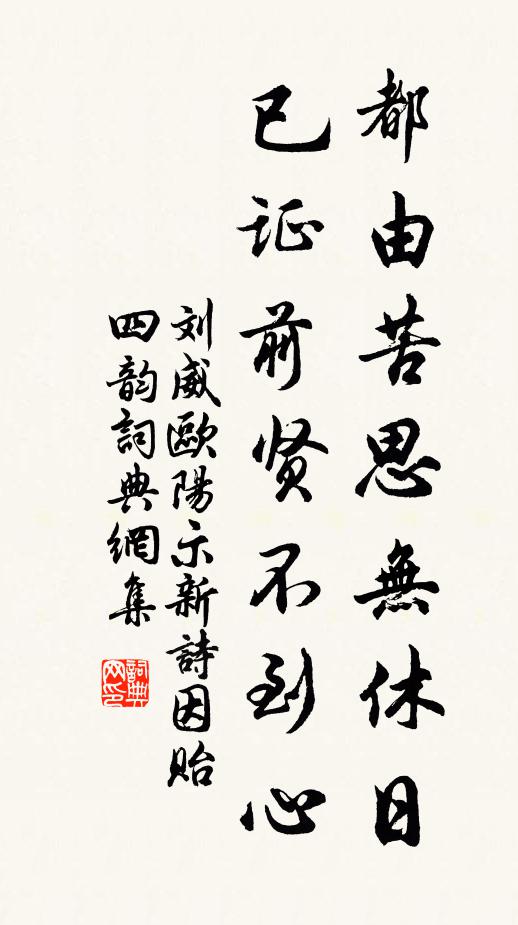 都由苦思無休日
已证前贤不到心
刘威歐陽示新詩因貽
四韵詞典網集
詞典网印